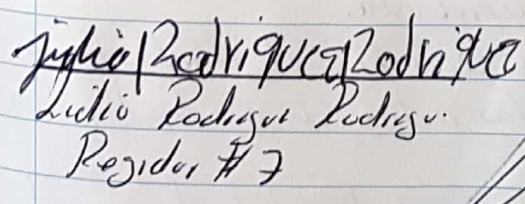 julio Rodriguez Rodriguez
Lidio Rodrigue Rodrigu.
Regidor # 7